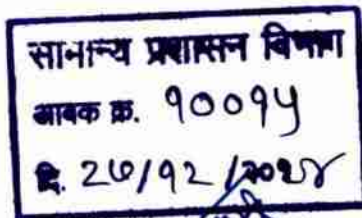 सामान्य प्रशासन विभाग
आवक क्र. १००१५
दि. २७/१२/२०२४